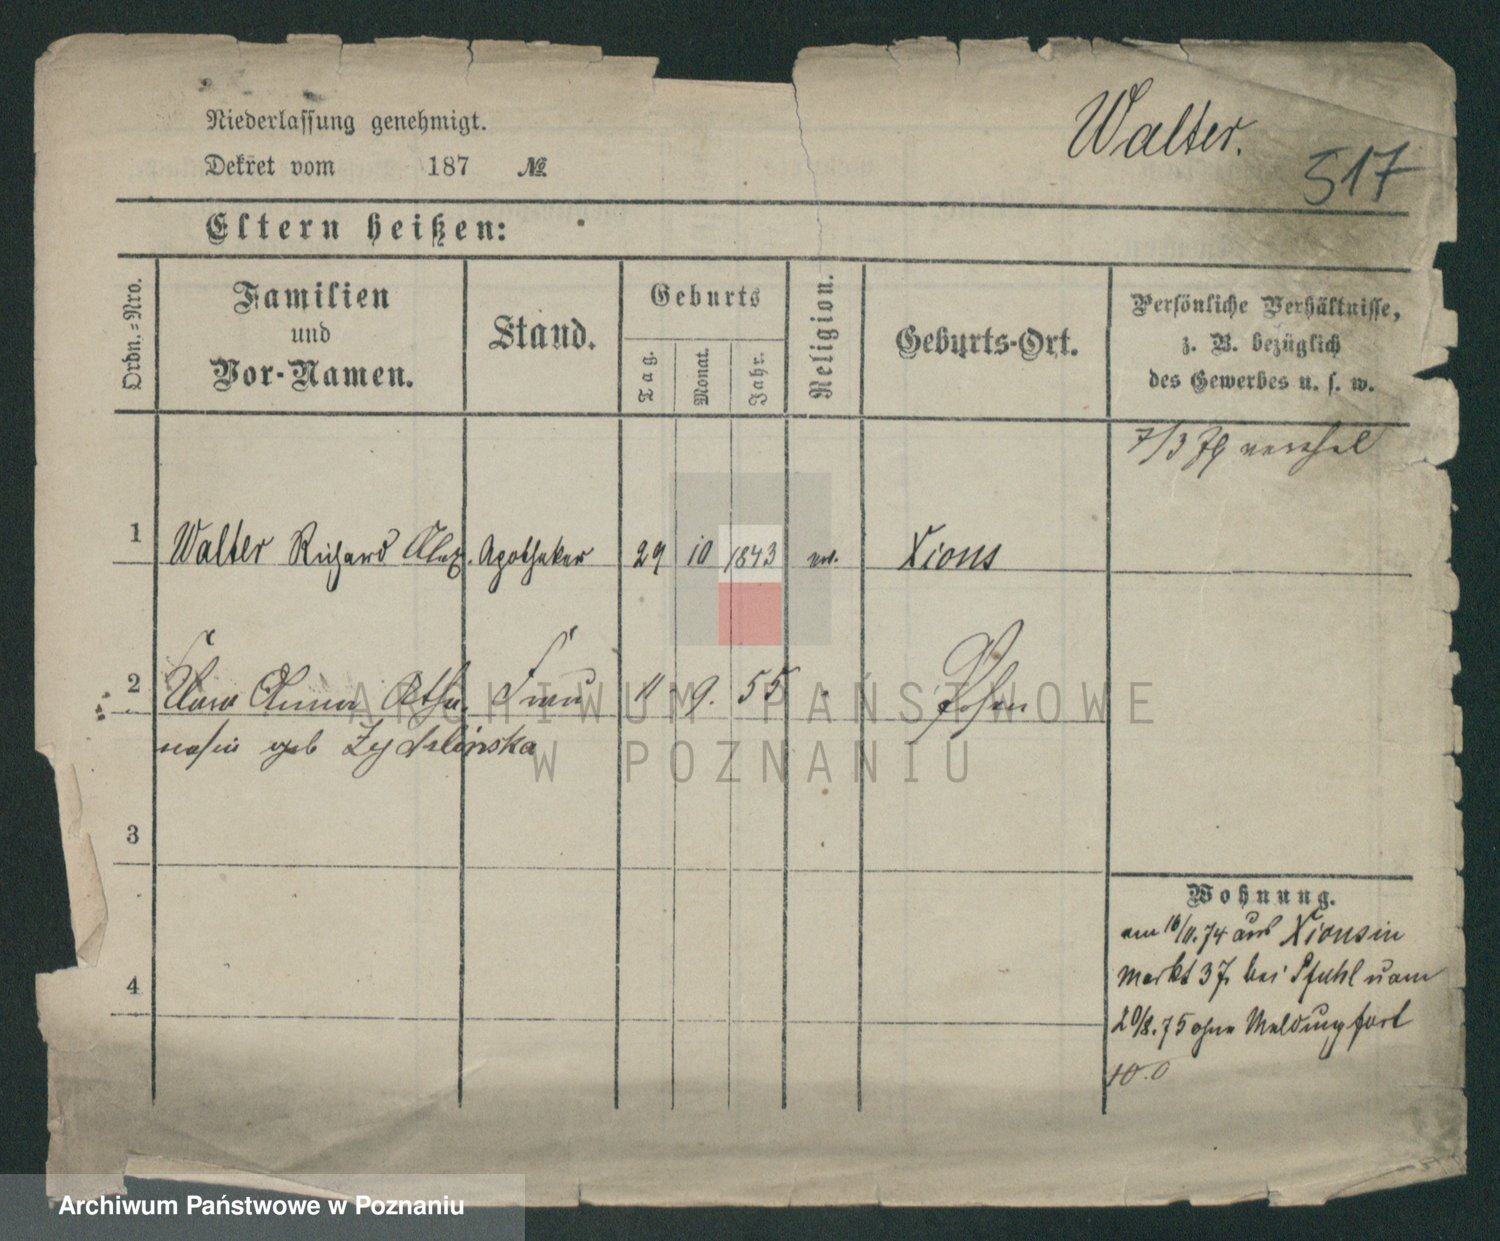 Niederlassung genehmigt.
Walter.
Dekret vom 187 №
517
Eltern heißen:
Ordn.=Nro.
Familien
und
Vor-Namen.
Stand.
Geburts
Tag.
Monat.
Jahr.
Religion.
Geburts-Ort.
Persönliche Verhältnisse,
z. B. bezüglich
des Gewerbes u. s. w.
7/3 79
1 Walter Richard Alex. Apotheker 29 10 1843 ev. Xions
2 Anna Atha- Frau 11 9. 55 - Posen
nasia geb Zydlinska
3
4
Wohnung.
am 16/11.74 aus Xions in
Markt 37, bei Pfuhl u am
20/8.75 ohne Meldung fort
ARCHIWUM PAŃSTWOWE
W POZNANIU
Archiwum Państwowe w Poznaniu